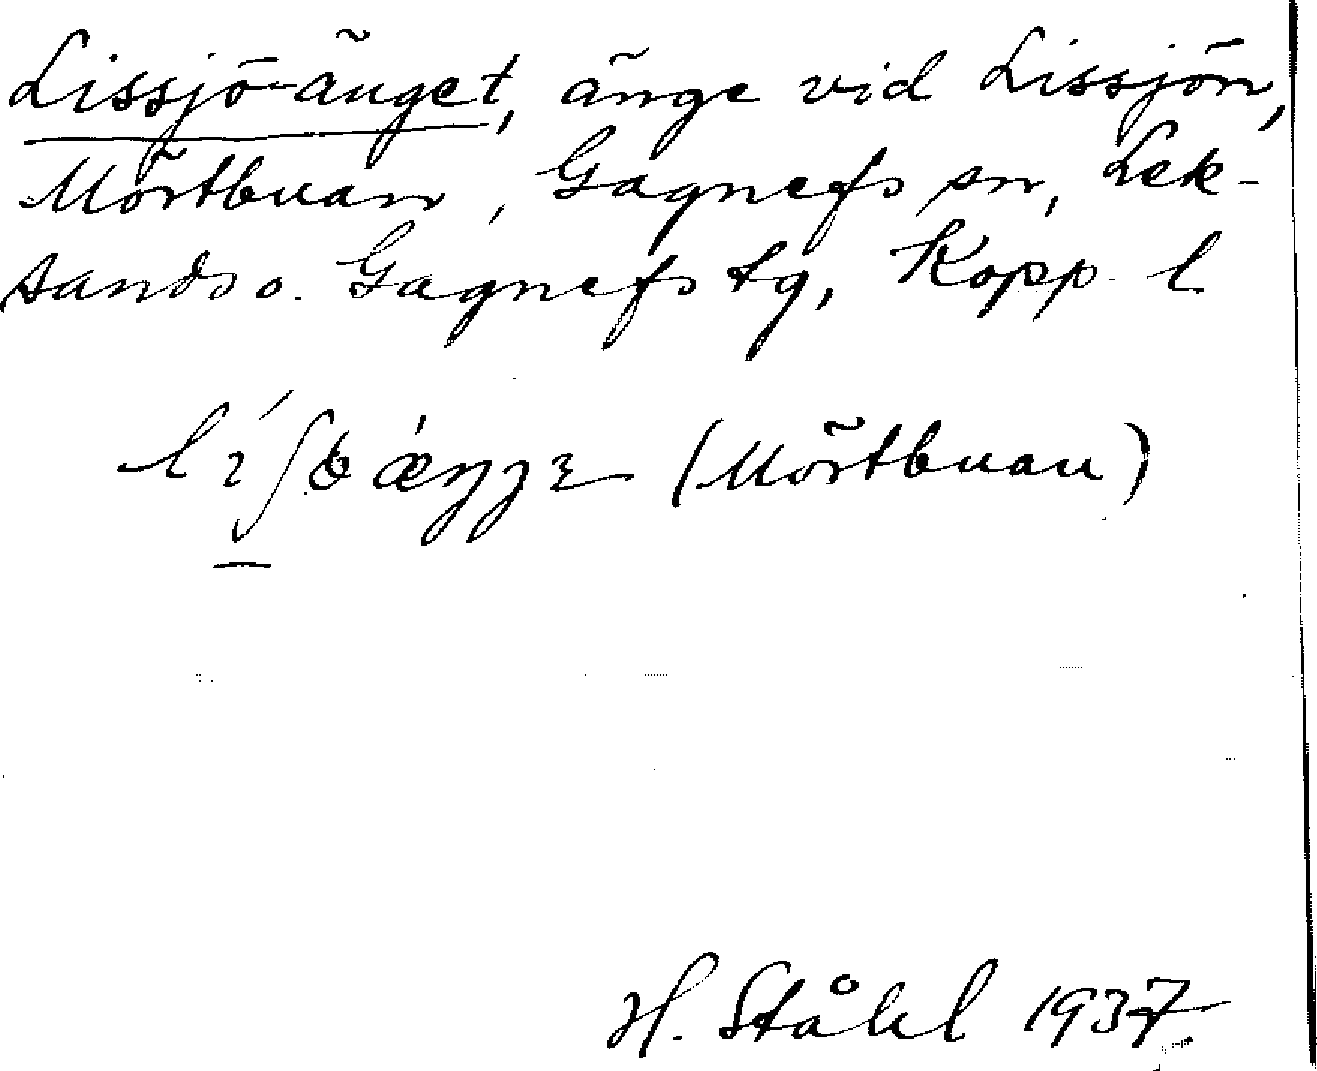 Lissjö-änget, änge vid Lissjön,
Mörtbuan, Gagnefs sn, Lek-
sands o. Gagnefs tg, Kopp. l
(Mörtbuan)
H. Ståhl 1937